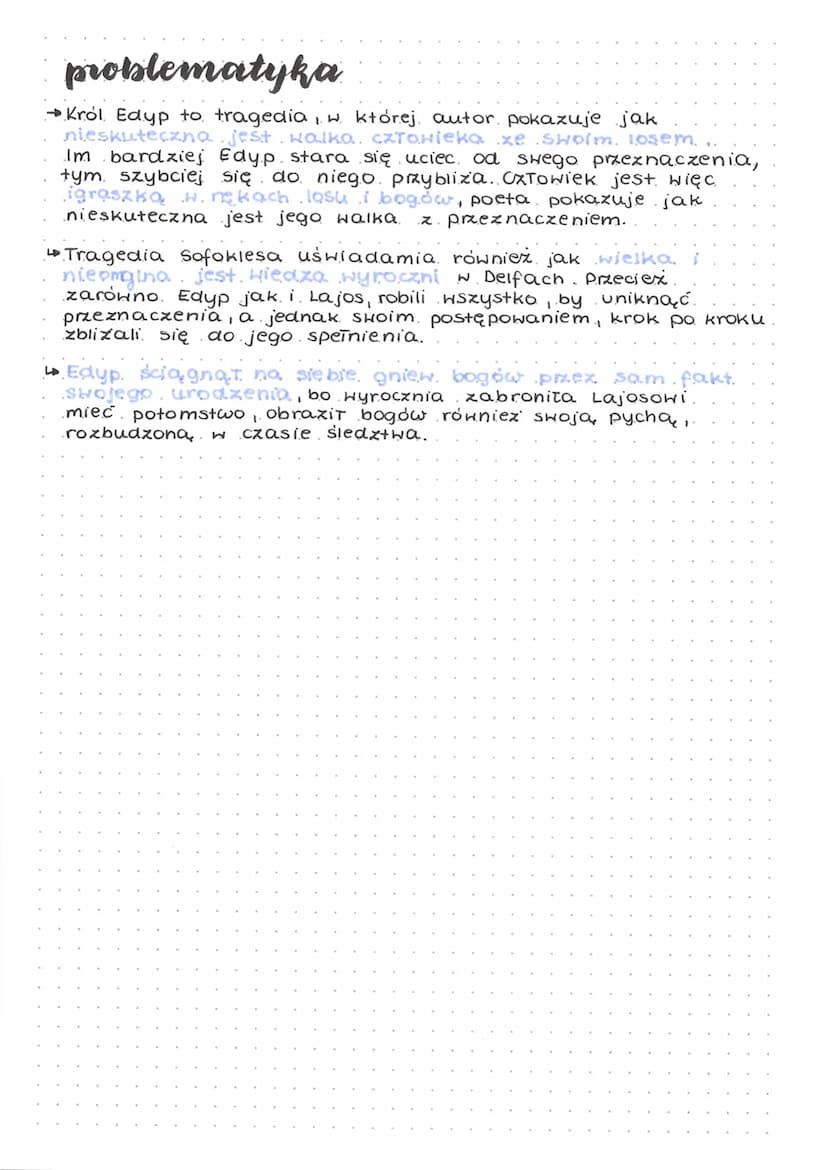 problematyka
→Król Edyp to tragedia, w której autor pokazuje jak
nieskuteczna jest walka człowieka ze swoim losem.
Im bardziej Edyp stara się uciec od swego przeznaczenia,
tym szybciej się do niego przybliża. Człowiek jest więc
igraszką w rękach losu i bogów, poeta pokazuje jak
nieskuteczna jest jego walka z przeznaczeniem.
↳Tragedia Sofoklesa uświadamia również jak wielka i
nieomylna jest wiedza wyroczni w Delfach. Przecież
zarówno Edyp jak i Lajos, robili wszystko, by uniknąć
przeznaczenia, a jednak swoim postępowaniem, krok po kroku
zbliżali się do jego spełnienia.
↳Edyp ściągnął na siebie gniew bogów przez sam fakt
swojego urodzenia, bo wyrocznia zabroniła Lajosowi
mieć potomstwo, obraził bogów również swoją pychą,
rozbudzoną w czasie śledztwa.